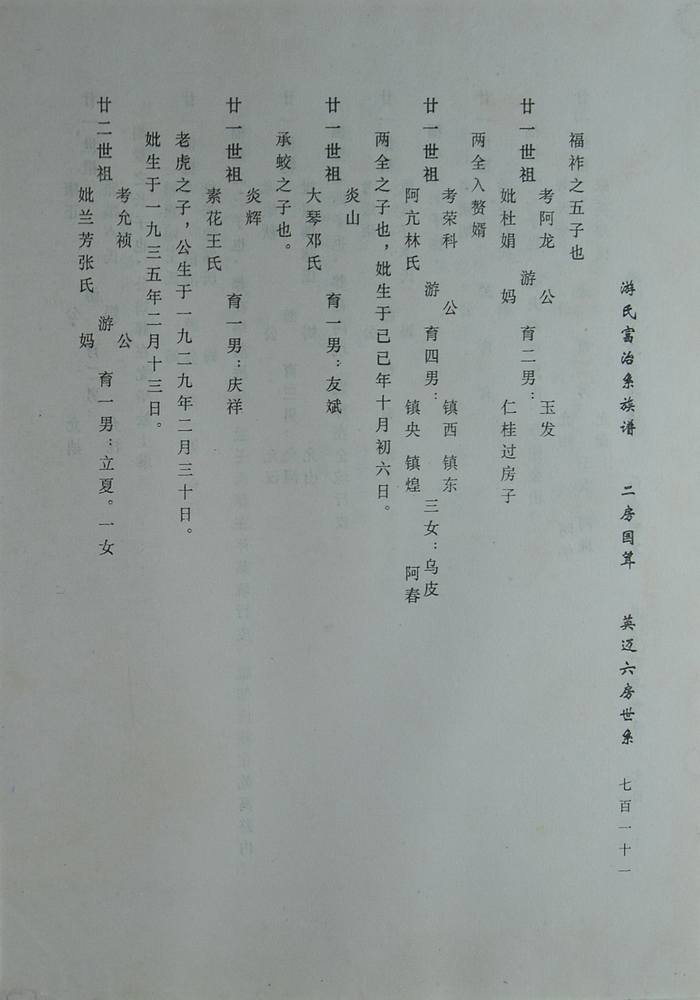 游氏富治系族谱 二房国耸 英迈六房世系 七百一十一
福祚之五子也
考阿龙 公 玉发
廿一世祖 游 育二男：
妣杜娟 妈 仁桂过房子
两全入赘婿
考荣科 公 镇西 镇东
廿一世祖 游 育四男： 三女：乌皮
阿亢林氏 镇央 镇煌 阿春
两全之子也，妣生于己巳年十月初六日。
炎山
廿一世祖 育一男：友斌
大琴邓氏
承蛟之子也。
炎辉
廿一世祖 育一男：庆祥
素花王氏
老虎之子，公生于一九二九年二月三十日。
妣生于一九三五年二月十三日。
考允祯 公
廿二世祖 游 育一男：立夏。一女
妣兰芳张氏 妈